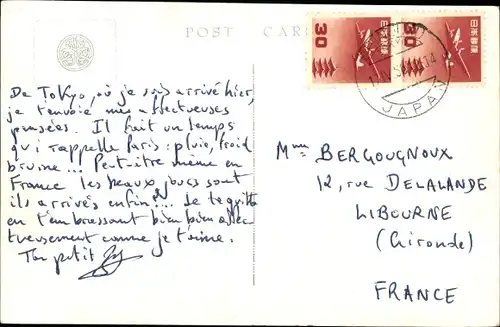 POST CARD
De Tokyo, où je suis arrivé hier,
je t'envoie mes affectueuses
pensées. Il fait un temps
qui rappelle Paris : pluie, froid
bruine... Peut-être même en
France les beaux jours sont
ils arrivés enfin?... Je te quitte
en t'embrassant bien bien affec-
tueusement comme je t'aime.
Ton petit
30
日本郵便
30
日本郵便
JAPAN
Mme BERGOUGNOUX
12, rue DELALANDE
LIBOURNE
(Gironde)
FRANCE